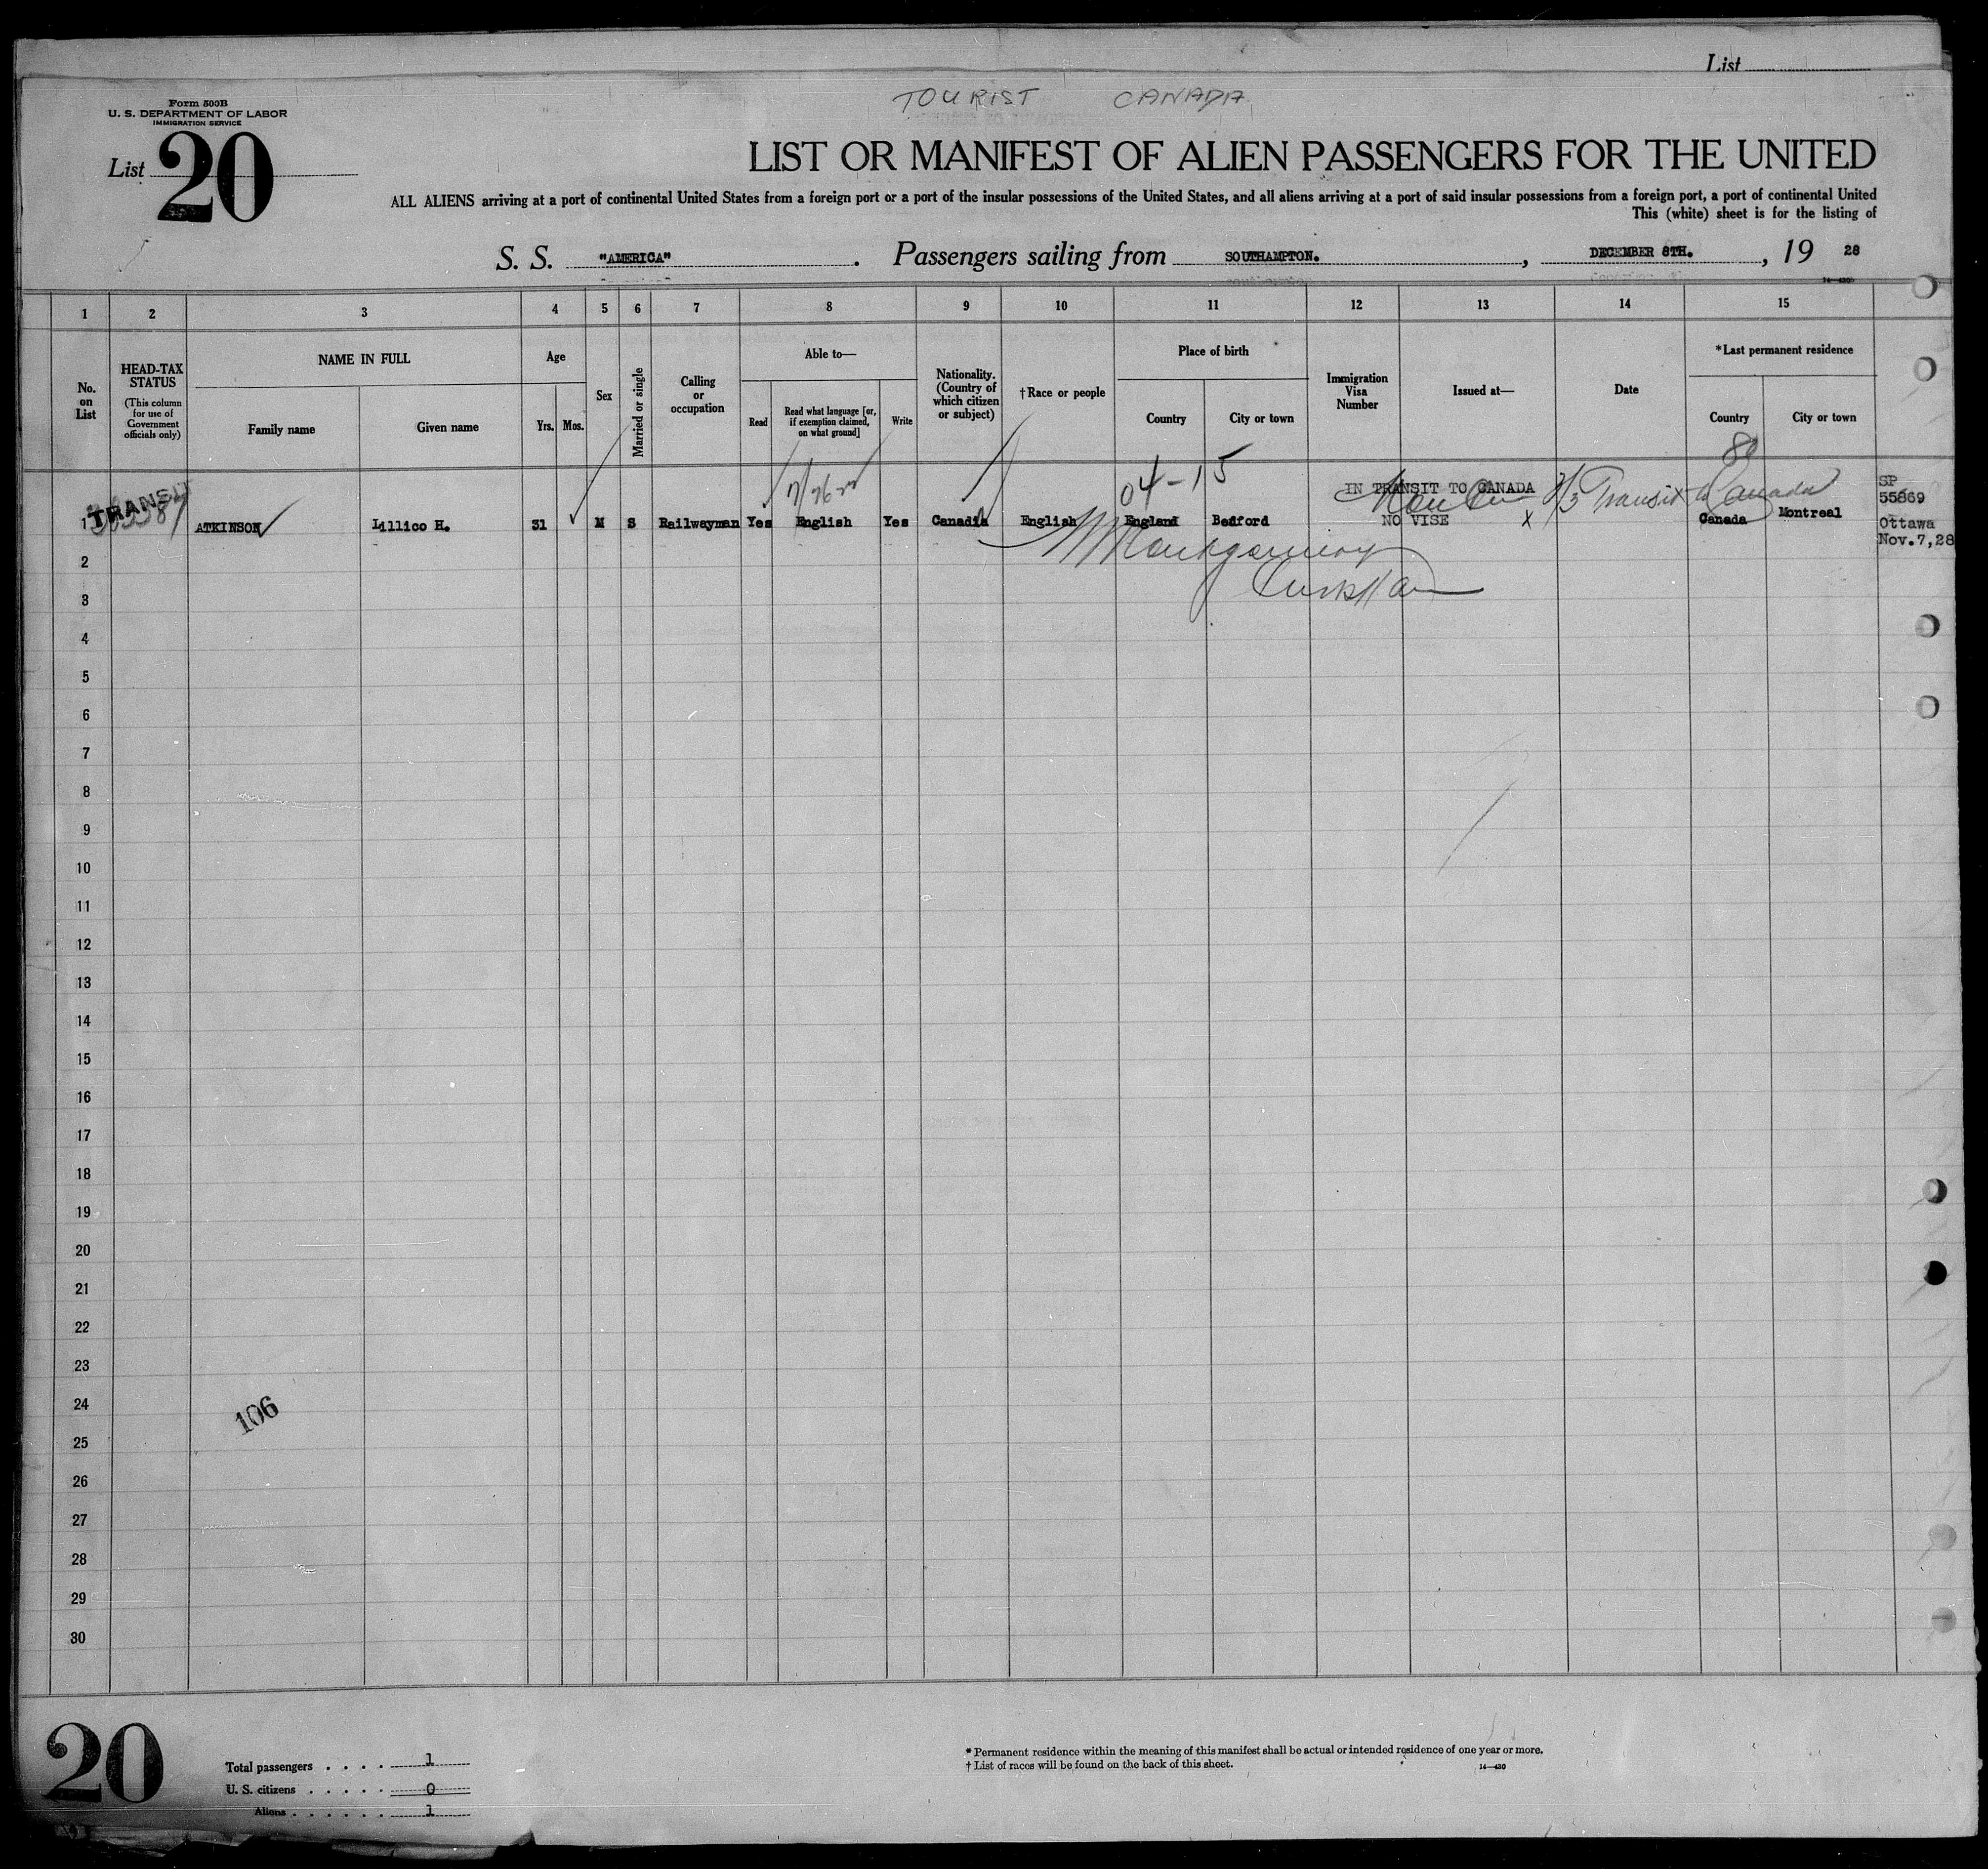 List
TOURIST CANADA
Form 500B
U. S. DEPARTMENT OF LABOR
IMMIGRATION SERVICE
List 20
LIST OR MANIFEST OF ALIEN PASSENGERS FOR THE UNITED
ALL ALIENS arriving at a port of continental United States from a foreign port or a port of the insular possessions of the United States, and all aliens arriving at a port of said insular possessions from a foreign port, a port of continental United
This (white) sheet is for the listing of
S. S. "AMERICA". Passengers sailing from SOUTHAMPTON. , DECEMBER 8TH. , 19 28
1 2 3 4 5 6 7 8 9 10 11 12 13 14 15
No. on List
HEAD-TAX STATUS
(This column for use of Government officials only)
NAME IN FULL
Family name
Given name
Age
Yrs.
Mos.
Sex
Married or single
Calling or occupation
Able to—
Read
Read what language [or, if exemption claimed, on what ground]
Write
Nationality. (Country of which citizen or subject)
†Race or people
Place of birth
Country
City or town
Immigration Visa Number
Issued at—
Date
*Last permanent residence
Country
City or town
80
04-15
TRANSIT
IN TRANSIT TO CANADA
Transit to Canada
SP
55869
1 ATKINSON Lillico H. 31 M S Railwayman Yes English Yes Canadia English England Bedford NO VISE X Canada Montreal
Ottawa
Nov.7,28
Montgomery
2
3
4
5
6
7
8
9
10
11
12
13
14
15
16
17
18
19
20
21
22
23
24
106
25
26
27
28
29
30
20
Total passengers . . . . 1
U. S. citizens . . . . . 0
Aliens . . . . . . 1
* Permanent residence within the meaning of this manifest shall be actual or intended residence of one year or more.
† List of races will be found on the back of this sheet.
14—430